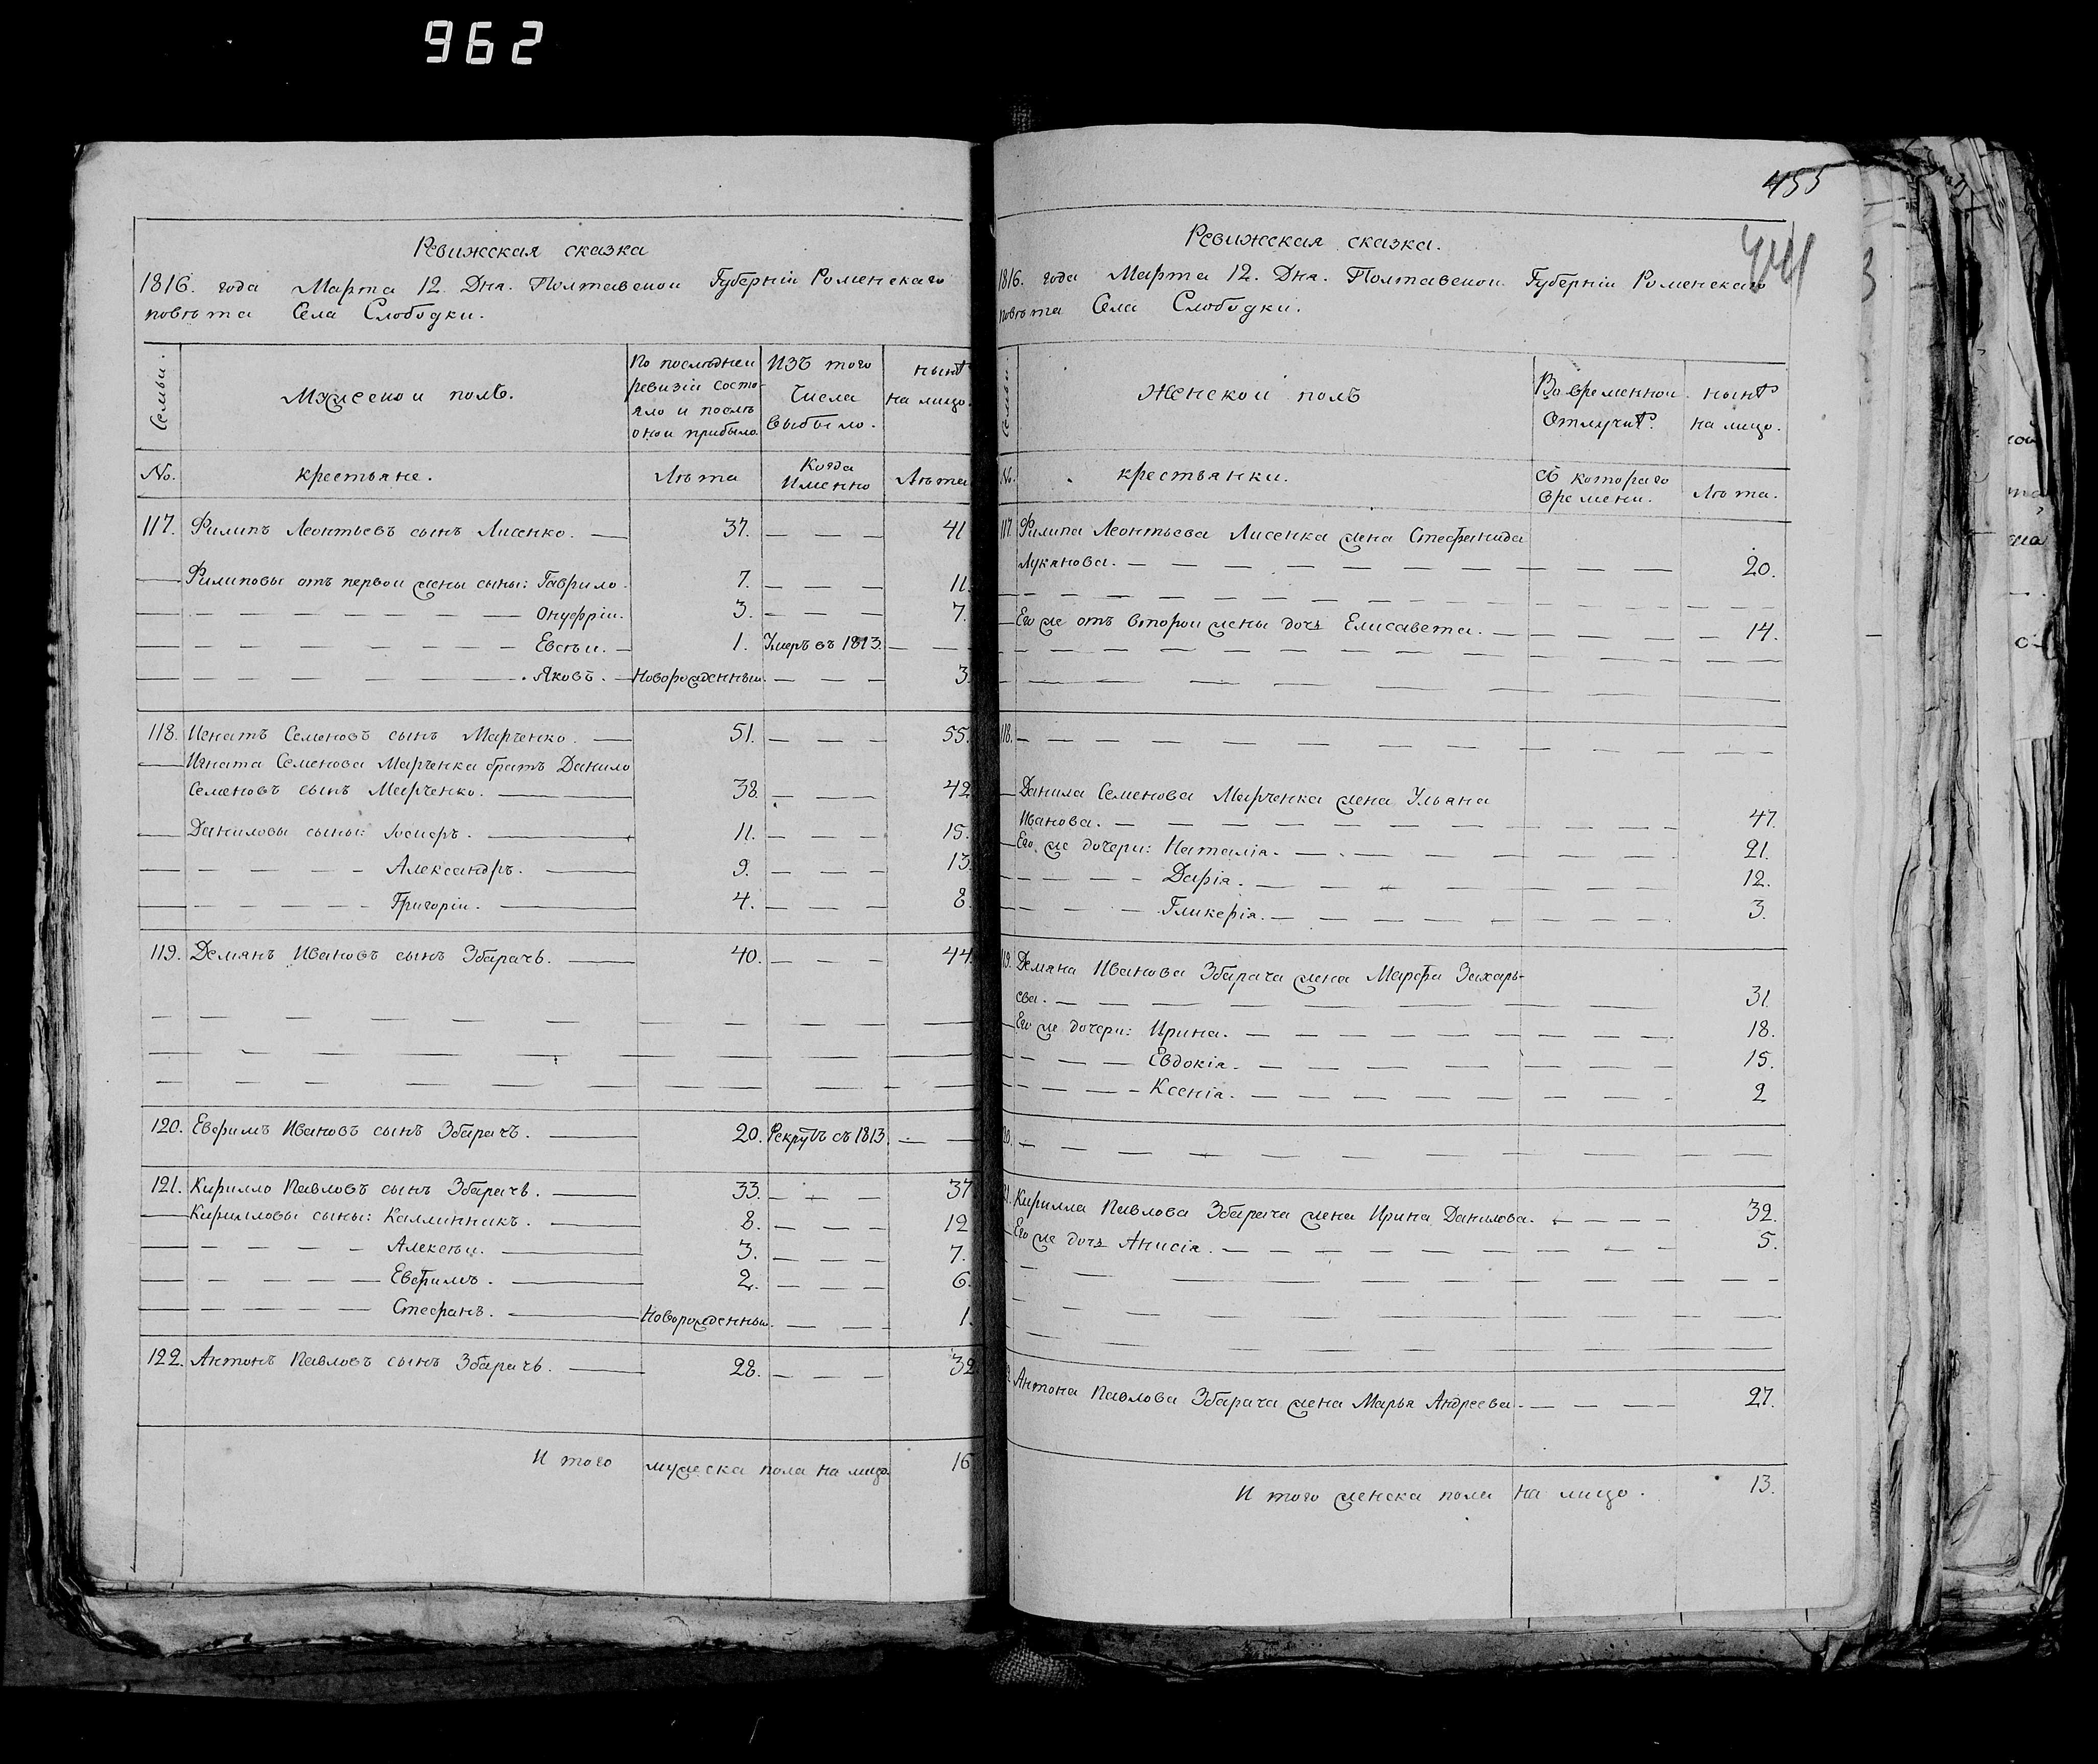 962
Ревижская сказка
1816. года Марта 12. Дня. Полтавскои Губерніи Роменскаго
повѣта Села Слободки.
Семьи.
Мужескои полъ.
По послѣднеи
ревизіи состо-
яло и послѣ
онои прибыло.
Изъ того
числа
выбыло.
нынѣ
на лицо.
No.
крестьяне.
Лѣта
Когда
Именно
Лѣта
117. Филипъ Леонтьевъ сынъ Лисенко. 37. 41
Филиповы отъ первои жены сыны: Гаврило. 7. 11.
Онуфріи. 3. 7.
Евсѣи. 1. Умеръ въ 1813.
Яковъ. Новорожденныи. 3.
118. Игнатъ Семеновъ сынъ Марченко. 51. 55.
Игната Семенова Марченка братъ Данило
Семеновъ сынъ Марченко. 38. 42
Даниловы сыны: 11. 15.
Александръ. 9. 13
Григоріи. 4. 8.
119. Демянъ Ивановъ сынъ Збарачъ. 40. 44.
120. Евфимъ Ивановъ сынъ Збарачъ. 20. Рекрутъ съ 1813.
121. Кирилло Павловъ сынъ Збарачъ. 33. 37
Кириловы сыны: Каллинникъ. 8. 12
Алексѣи. 3. 7.
Евфимъ. 2. 6.
Стефанъ. Новорожденныи. 1.
122. Антонъ Павловъ сынъ Збарачъ. 28. 32
И того мужеска пола на лицо 16
455
Ревижская сказка.
1816. года Марта 12. Дня. Полтавскои Губерніи Роменскаго
повѣта Села Слободки.
Семьи.
Женскои полъ
Во временнои
отлучкѣ.
нынѣ
на лицо.
No.
крестьянки.
съ котораго
времени.
Лѣта.
117. Филипа Леонтьева Лисенка жена Стефанида
Луканова. 20.
Его же отъ второи жены дочь Елисавета. 14.
118.
Данила Семенова Марченка жена Ульяна
Иванова. 47.
Его же дочери: Наталія. 21.
Дарія. 12.
Гликерія. 3.
119. Демяна Иванова Збарача жена Марфа Захарь-
ева. 31.
Его же дочери: Ирина. 18.
Евдокія. 15.
Ксенія. 2
120.
121. Кирилла Павлова Збарача жена Ирина Данилова. 32.
Его же дочь Анисія. 5.
Антона Павлова Збарача жена Марья Андреева. 27.
И того женска пола на лицо. 13.